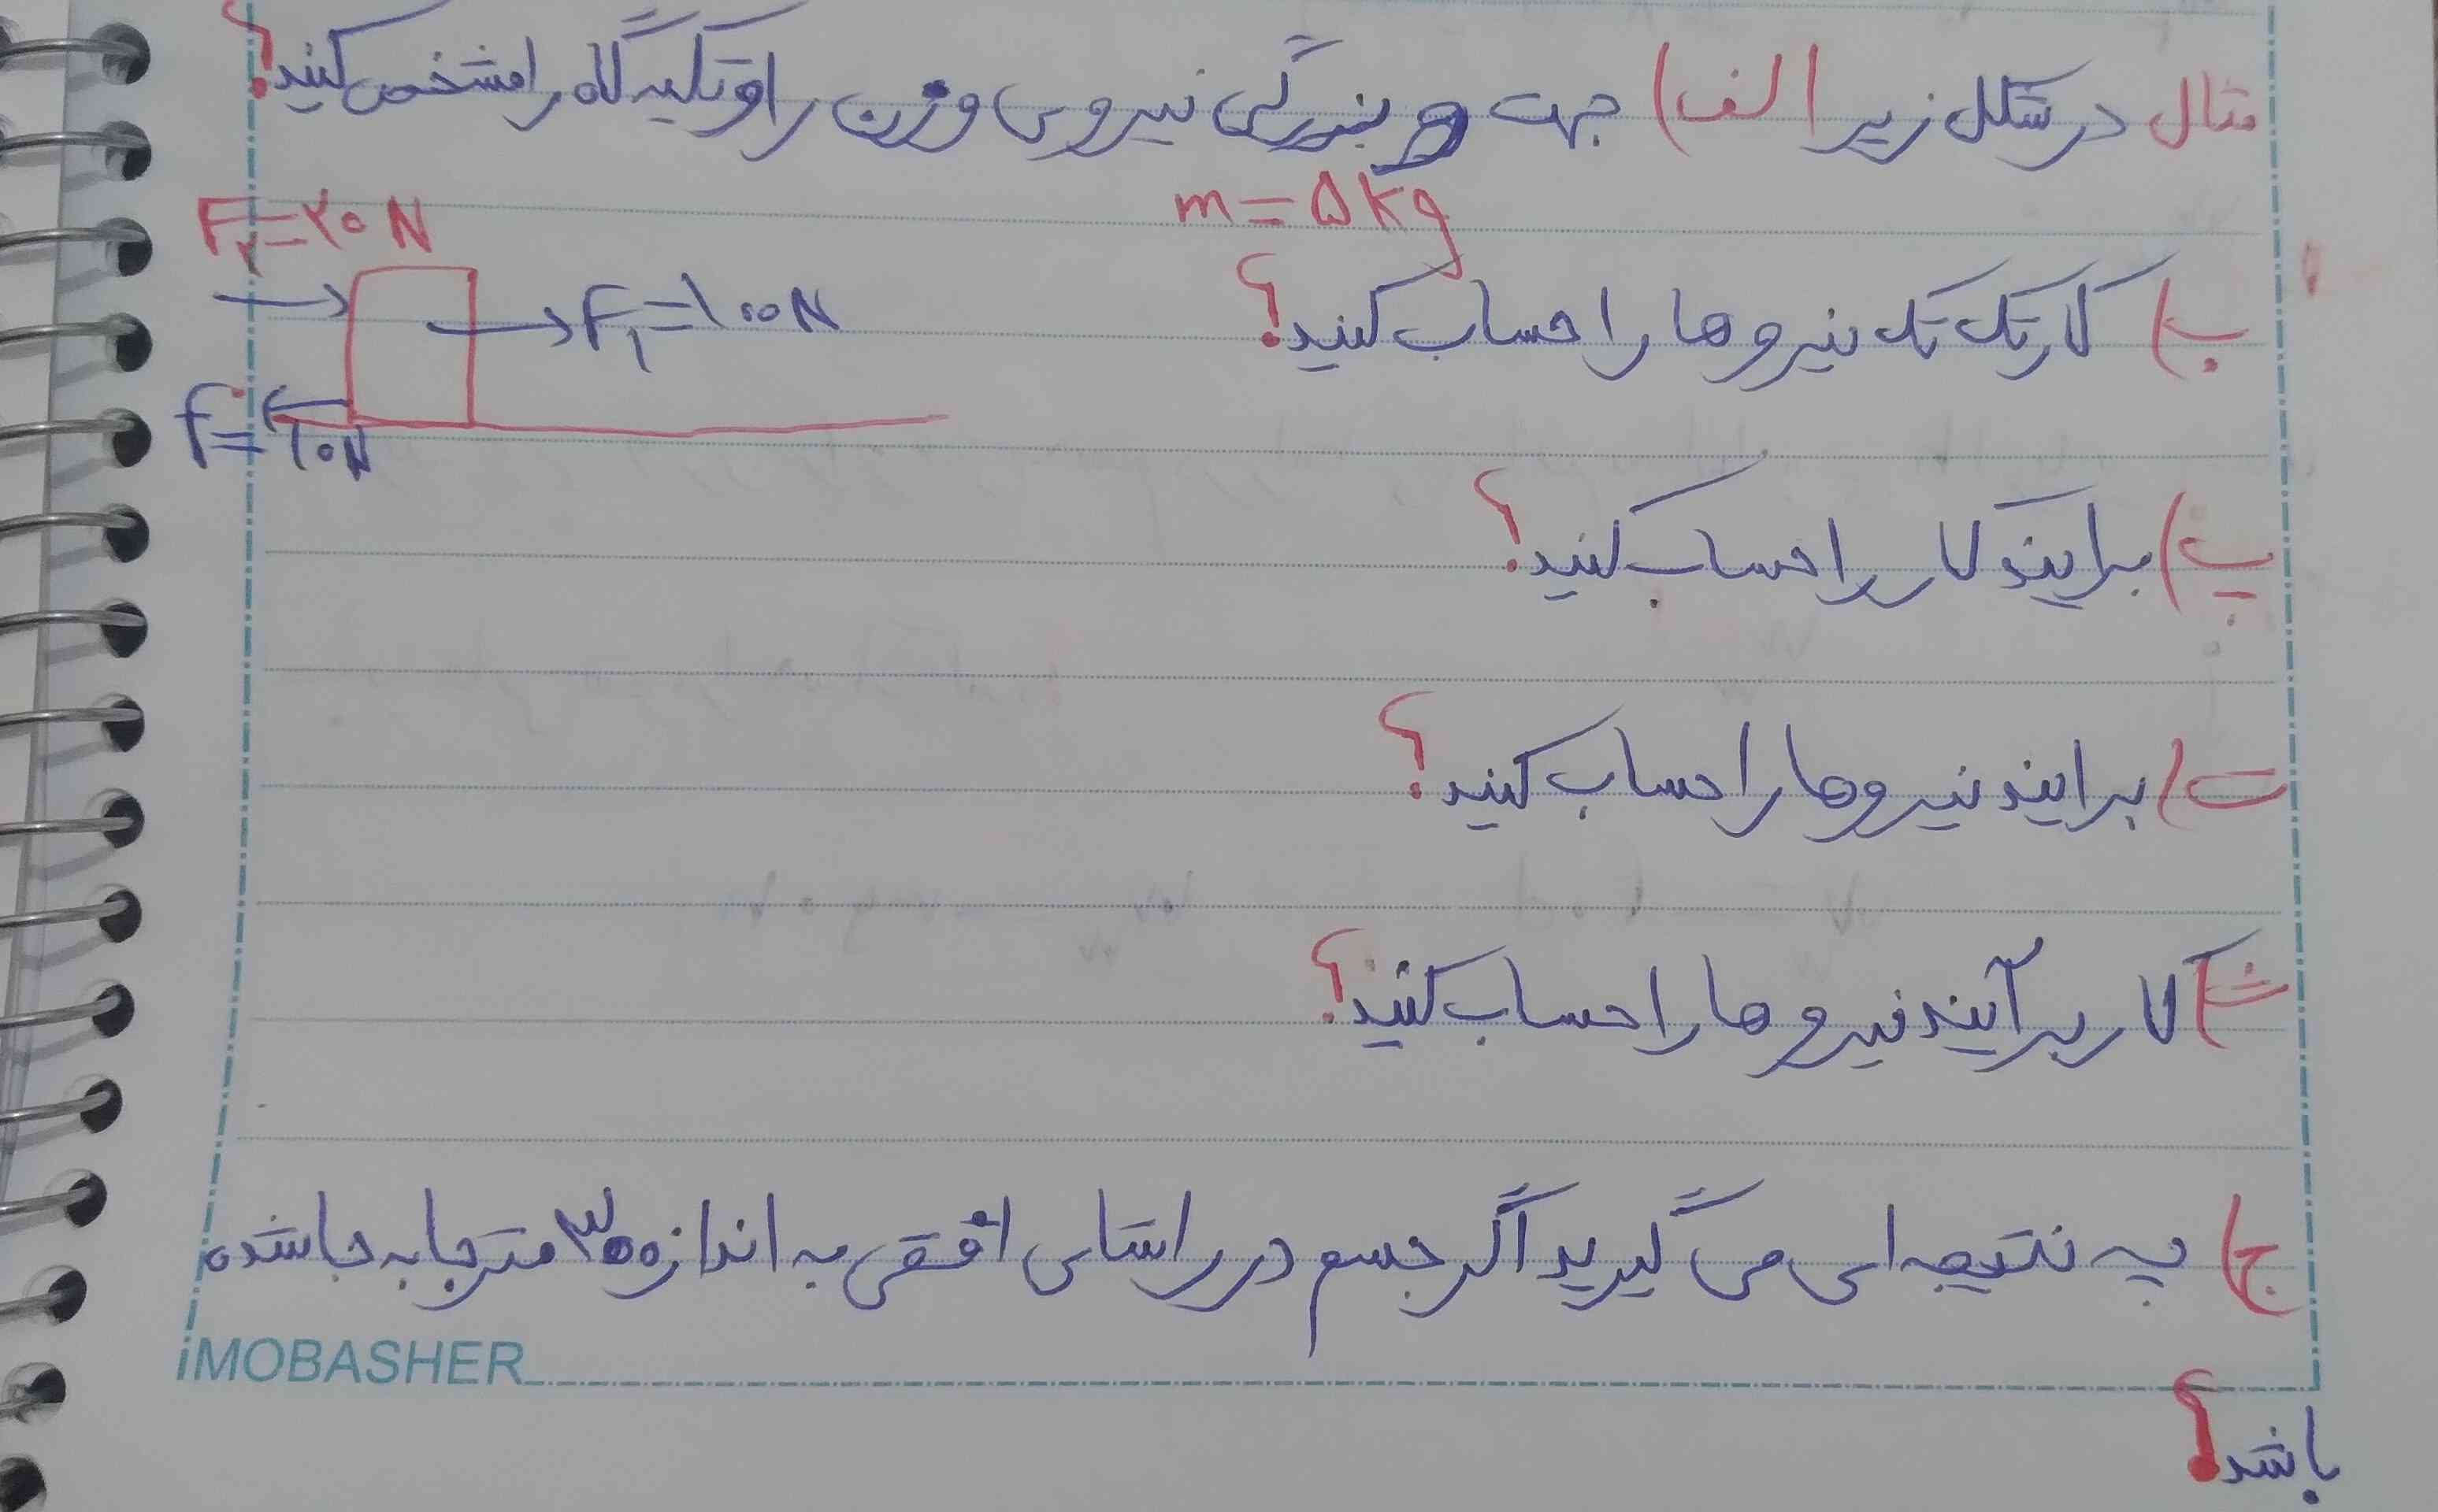 مثال در شکل زیر الف) جهت و بزرگی نیروی وزن را و تکیه گاه را مشخص کنید؟
m=۵kg
F۲=۲۰N
ب) کار تک تک نیرو ها را حساب کنید؟
F۱=۱۰۰N
f=۱۰N
پ) برایند کار را حساب کنید؟
ت) برایند نیروها را حساب کنید؟
ث) کار برآیند نیرو ها را حساب کنید؟
ج) چه نتیجه ای می گیرید اگر جسم در راستای افقی به اندازه ۳۰۰ متر جا به جا شده
iMOBASHER
باشد؟